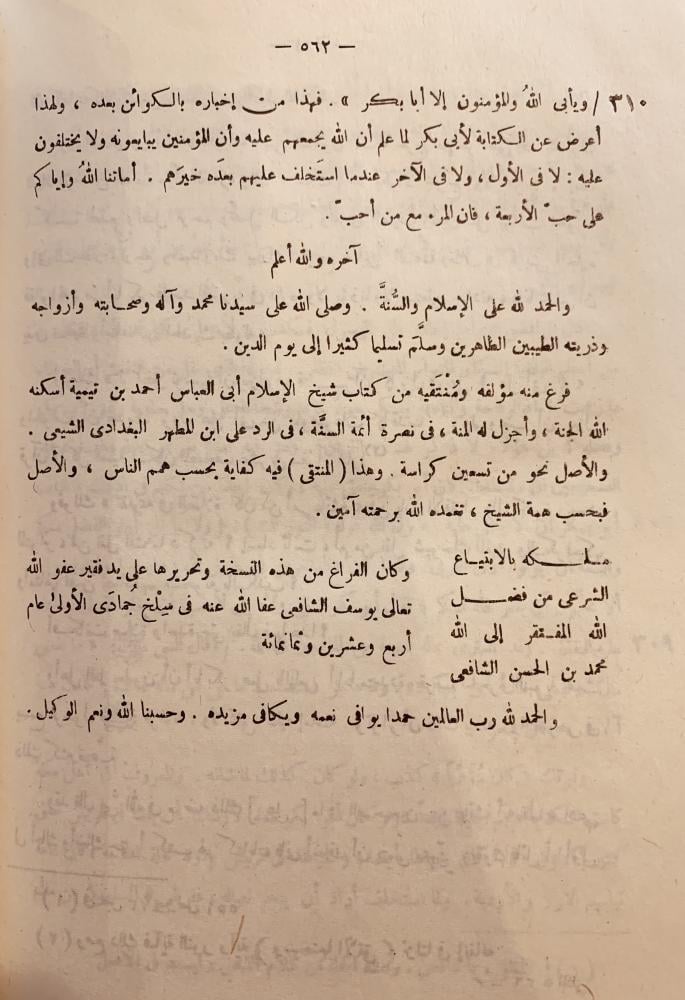 — ٥٦٢ —
٣١٠ / ويأبى اللهُ والمؤمنون إلا أبا بكر » . فهذا من إخباره بالكوائن بعده ، ولهذا
أعرض عن الكتابة لأبى بكر لما علم أن الله يجمعهم عليه وأن المؤمنين يبايعونه ولا يختلفون
عليه : لا فى الأول ، ولا فى الآخر عندما استَخلف عليهم بعدَه خيرَهم . أماتنا اللهُ وإياكم
على حبّ الأربعة ، فان المرء مع من أحبّ .
آخره والله أعلم
والحمد لله على الإسلام والسُّنةَّ . وصلى الله على سيدنا محمد وآله وصحابته وأزواجه
وذريته الطيبين الطاهرين وسلَّم تسليما كثيرا إلى يوم الدين .
فرغ منه مؤلفه ومُنْتَقيه من كتاب شيخ الإسلام أبى العباس أحمد بن تيمية أسكنه
الله الجنة ، وأجزل له المنة ، فى نصرة أئمة السنَّة ، فى الرد على ابن المطهر البغدادى الشيعى .
والأصل نحو من تسعين كراسة . وهذا ( المنتقى ) فيه كفاية بحسب همم الناس ، والأصل
فبحسب همة الشيخ ، تغمده الله برحمته آمين .
ملكه بالابتياع
الشرعى من فضل
الله المفتقر إلى الله
محمد بن الحسن الشافعى
وكان الفراغ من هذه النسخة وتحريرها على يد فقير عفو الله
تعالى يوسف الشافعى عفا الله عنه فى مِسْلخ جُمادَى الأولىٰ عام
أربع وعشرين وثمانمائة
والحمد لله رب العالمين حمدا يوافى نعمه ويكافى مزيده . وحسبنا الله ونعم الوكيل .